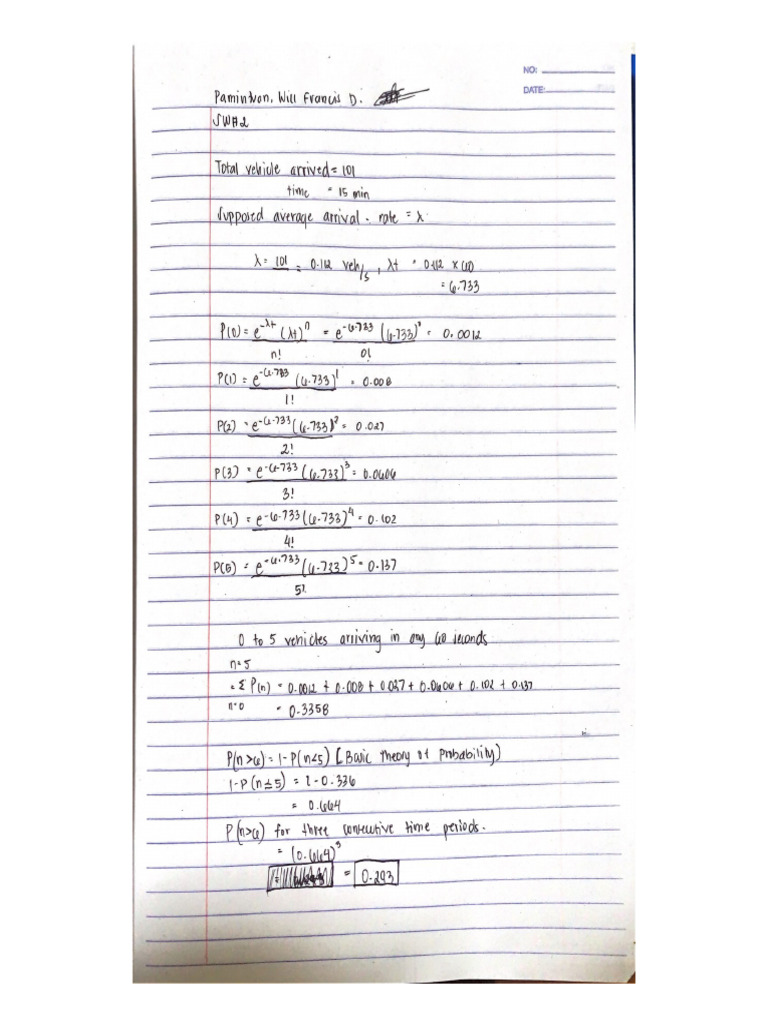 NO:
DATE:
Pamintuan, Will Francis D.
SW#2
Total vehicle arrived = 101
time = 15 min
Supposed average arrival - rate = λ
λ = 101 = 0.112 veh/s , λt = 0.112 x 60
= 6.733
P(0) = e^-λt (λt)^n = e^-6.733 (6.733)^0 = 0.0012
n! 0!
P(1) = e^-6.733 (6.733)^1 = 0.008
1!
P(2) = e^-6.733 (6.733)^2 = 0.027
2!
P(3) = e^-6.733 (6.733)^3 = 0.0606
3!
P(4) = e^-6.733 (6.733)^4 = 0.102
4!
P(5) = e^-6.733 (6.733)^5 = 0.137
5!
0 to 5 vehicles arriving in any 60 seconds
n=5
= Σ P(n) = 0.0012 + 0.008 + 0.027 + 0.0606 + 0.102 + 0.137
n=0 = 0.3358
P(n>6) = 1-P(n≤5) [Basic theory of Probability)
1-P(n≤5) = 1-0.336
= 0.664
P(n>6) for three consecutive time periods.
= (0.664)^3
= 0.293